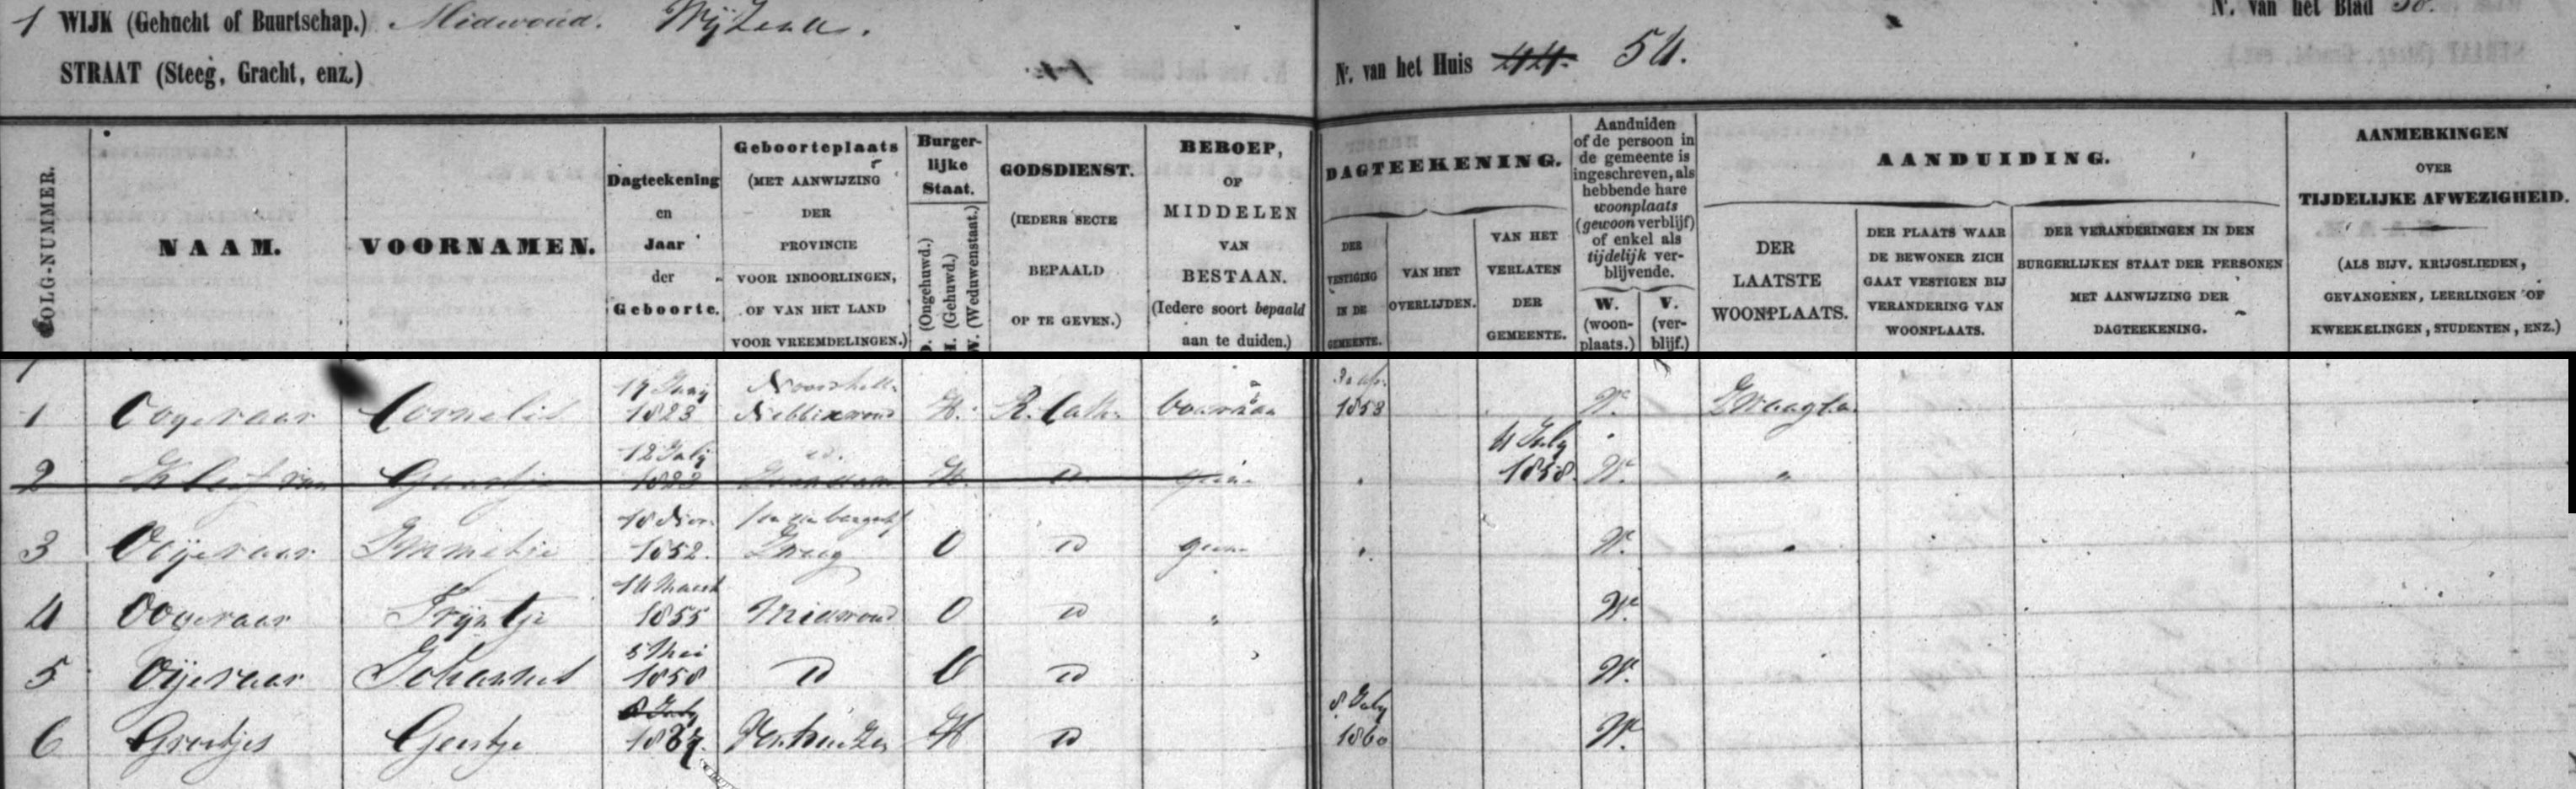 1 WIJK (Gehucht of Buurtschap.) Midwoud. Wijzend.
Nr. van het Blad
STRAAT (Steeg, Gracht, enz.)
Nr. van het Huis 44. 54.
VOLG-NUMMER.
NAAM.
VOORNAMEN.
Dagteekening
en
Jaar
der
Geboorte.
Geboorteplaats
(MET AANWIJZING
DER
PROVINCIE
VOOR INBOORLINGEN,
OF VAN HET LAND
VOOR VREEMDELINGEN.)
Burger-
lijke
Staat.
O. (Ongehuwd.)
H. (Gehuwd.)
W. (Weduwenstaat.)
GODSDIENST.
(IEDERE SECTE
BEPAALD
OP TE GEVEN.)
BEROEP,
OF
MIDDELEN
VAN
BESTAAN.
(Iedere soort bepaald
aan te duiden.)
DAGTEEKENING.
DER
VESTIGING
IN DE
GEMEENTE.
VAN HET
OVERLIJDEN.
VAN HET
VERLATEN
DER
GEMEENTE.
Aanduiden
of de persoon in
de gemeente is
ingeschreven, als
hebbende hare
woonplaats
(gewoon verblijf)
of enkel als
tijdelijk ver-
blijvende.
W.
(woon-
plaats.)
V.
(ver-
blijf.)
AANDUIDING.
DER
LAATSTE
WOONPLAATS.
DER PLAATS WAAR
DE BEWONER ZICH
GAAT VESTIGEN BIJ
VERANDERING VAN
WOONPLAATS.
DER VERANDERINGEN IN DEN
BURGERLIJKEN STAAT DER PERSONEN
MET AANWIJZING DER
DAGTEEKENING.
AANMERKINGEN
OVER
TIJDELIJKE AFWEZIGHEID.
(ALS BIJV. KRIJGSLIEDEN,
GEVANGENEN, LEERLINGEN OF
KWEEKELINGEN, STUDENTEN, ENZ.)
1 Oogeraar Cornelis 1823 Nibbixwoud H. R. Cath. 1853 W.
2 Geertje 12 Julij 1823 H. D. geen 4 July 1858. W. "
3 Oijeraar 1852. Zwaag O D geen W.
4 Oogeraar Trijntje 14 Maart 1855 Midwoud O D " W.
5 Oijeraar Johannes 5 Mei 1858 D O D W.
6 Grootjes Geertje 8 July 1837. Venhuizen H D 8 July 1860 W.